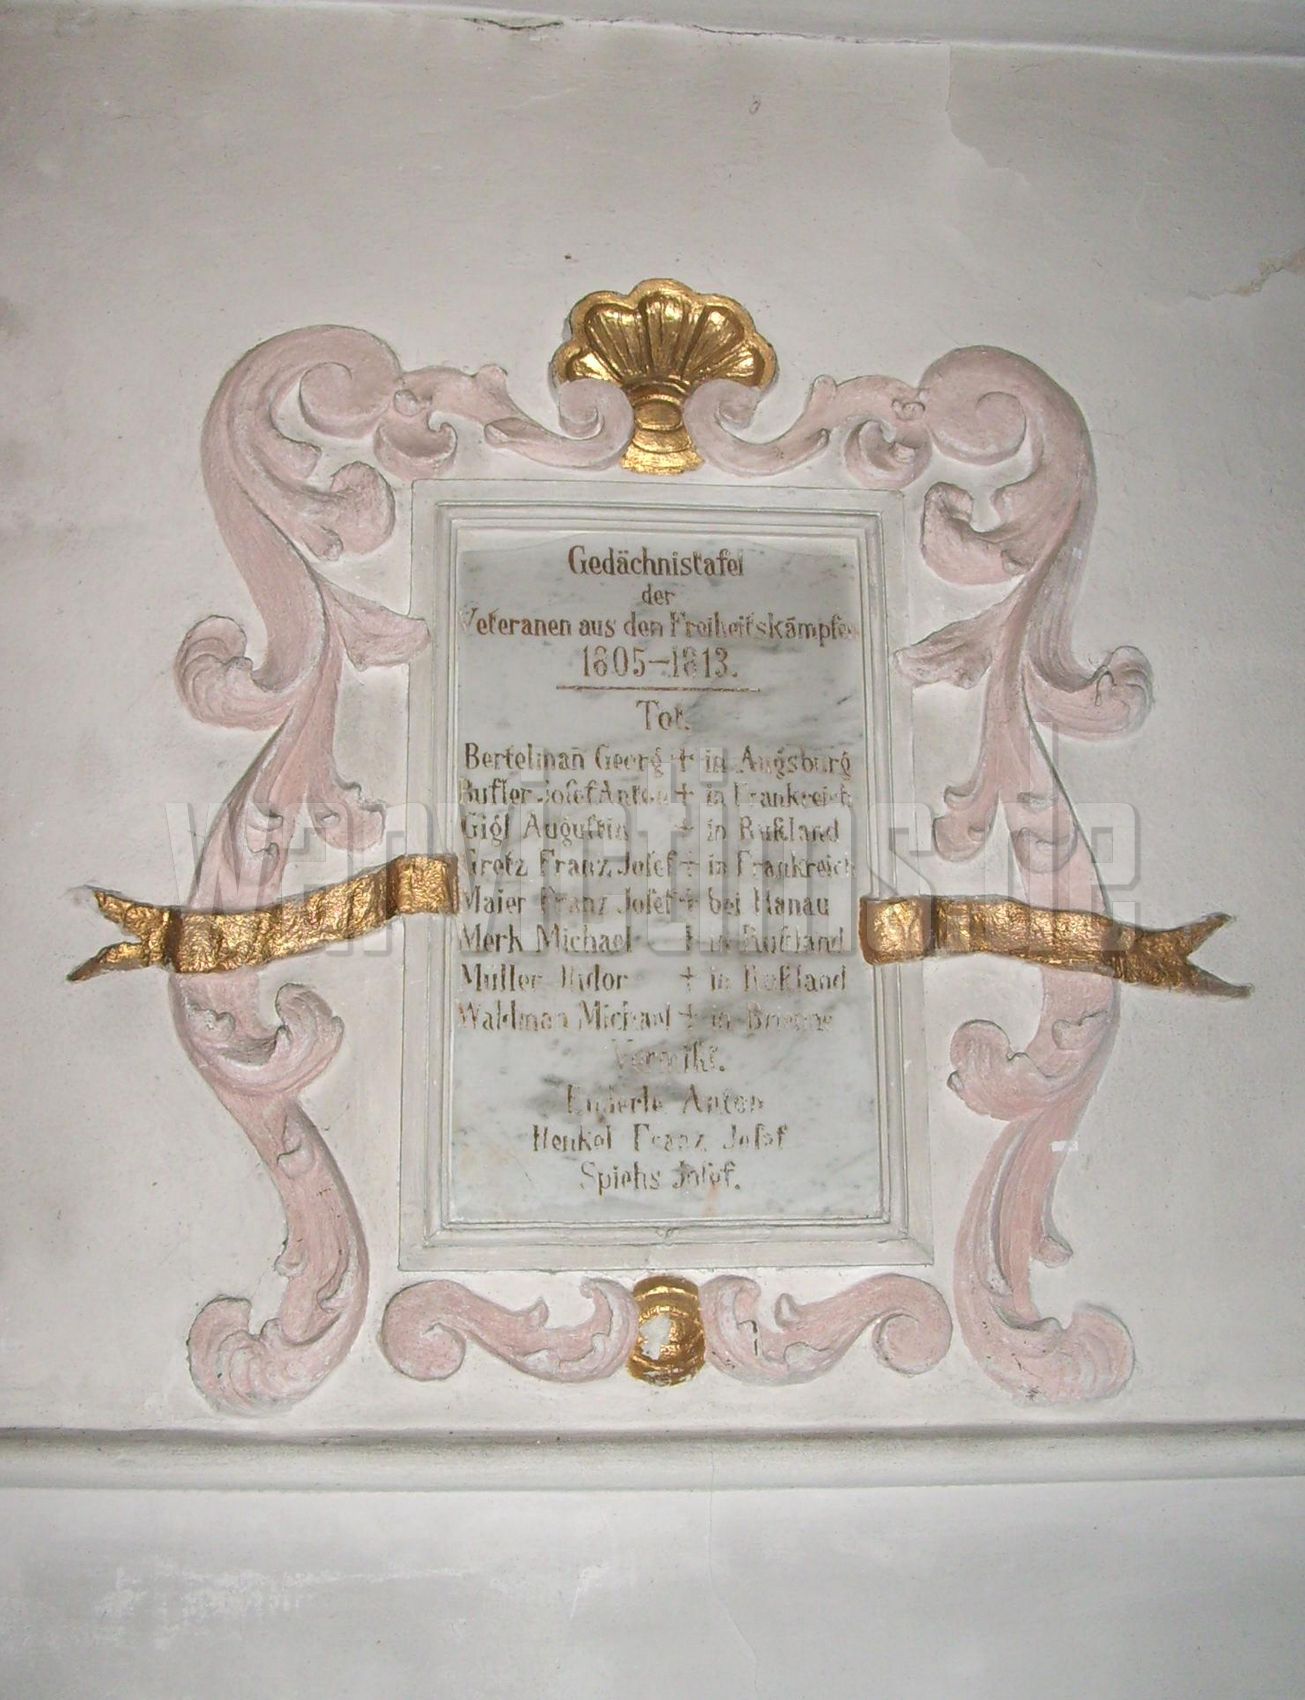 Gedächnistafel
der
Veteranen aus den Freiheitskämpfen
1805–1813.
Tot.
Bertelman Georg + in Augsburg
Bufler Joſef Anton + in Frankreich
Gigl Auguſtin + in Rußland
Gretz Franz Joſef + in Frankreich
Maier Franz Joſef + bei Hanau
Merk Michael + in Rußland
Müller Iſidor + in Rußland
Waldman Michael + in
Vermißt.
Enderle Anton
Henkel Franz Joſef
Spiehs Joſef.
warvictims.de